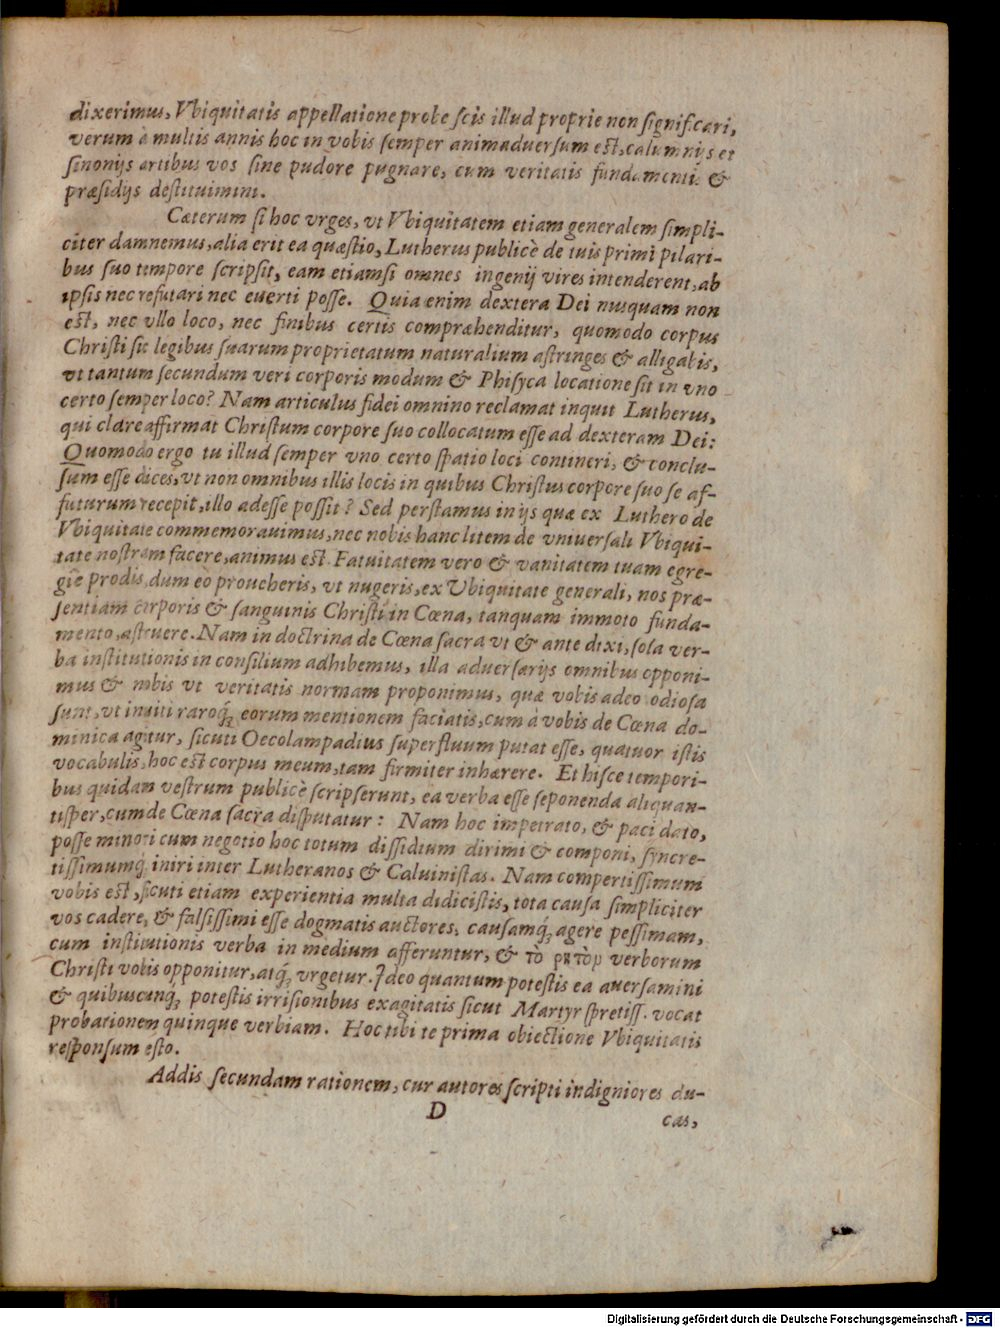 dixerimus, Vbiquitatis appellatione probe scis illud proprie non significari,
verum à multis annis hoc in vobis semper animaduersum est, calumnijs et
sinonijs artibus vos sine pudore pugnare, cum veritatis fundamentis &
præsidijs destituimini.
Cæterum si hoc vrges, vt Vbiquitatem etiam generalem simpli-
citer damnemus, alia erit ea quæstio, Lutherus publicè de tuis primi pilari-
bus suo tempore scripsit, eam etiamsi omnes ingenij vires intenderent, ab
ipsis nec refutari nec euerti posse. Quia enim dextera Dei nusquam non
est, nec vllo loco, nec finibus certis compræhenditur, quomodo corpus
Christi sic legibus suarum proprietatum naturalium astringes & alligabis,
vt tantum secundum veri corporis modum & Phisyca locatione sit in vno
certo semper loco? Nam articulus fidei omnino reclamat inquit Lutherus,
qui clare affirmat Christum corpore suo collocatum esse ad dexteram Dei:
Quomodo ergo tu illud semper vno certo spatio loci contineri, & conclu-
sum esse dices, vt non omnibus illis locis in quibus Christus corpore suo se af-
futurum recepit, illo adesse possit? Sed perstamus in ijs quæ ex Luthero de
Vbiquitate commemorauimus, nec nobis hanc litem de vniuersali Vbiqui-
tate nostram facere, animus est. Fatuitatem vero & vanitatem tuam egre-
gie prodis, dum eò proueheris, vt nugeris, ex Vbiquitate generali, nos præ-
sentiam corporis & sanguinis Christi in Cœna, tanquam immoto funda-
mento, astruere. Nam in doctrina de Cœna sacra vt & ante dixi, sola ver-
ba institutionis in consilium adhibemus, illa aduersarijs omnibus opponi-
mus & nobis vt veritatis normam proponimus, quæ vobis adeo odiosa
sunt, vt inuiti raroq́; eorum mentionem faciatis, cum à vobis de Cœna do-
minica agitur, sicuti Oecolampadius superfluum putat esse, quatuor istis
vocabulis, hoc est corpus meum, tam firmiter inhærere. Et hisce tempori-
bus quidam vestrum publicè scripserunt, ea verba esse seponenda aliquan-
tisper, cum de Cœna sacra disputatur: Nam hoc impetrato, & paci dato,
posse minori cum negotio hoc totum dissidium dirimi & componi, syncre-
tissimumq́; iniri inter Lutheranos & Caluinistas. Nam compertissimum
vobis est, sicuti etiam experientia multa didicistis, tota causa simpliciter
vos cadere, & falsissimi esse dogmatis auctores, causamq́; agere pessimam,
cum institutionis verba in medium afferuntur, & τὸ ῥητὸν verborum
Christi vobis opponitur, atq́; vrgetur. Ideo quantum potestis ea auersamini
& quibuscunq́; potestis irrisionibus exagitatis sicut Martyr spretiss. vocat
probationem quinque verbiam. Hoc tibi te prima obiectione Vbiquitatis
responsum esto.
Addis secundam rationem, cur autores scripti indigniores du-
D
cas,
Digitalisierung gefördert durch die Deutsche Forschungsgemeinschaft - DFG